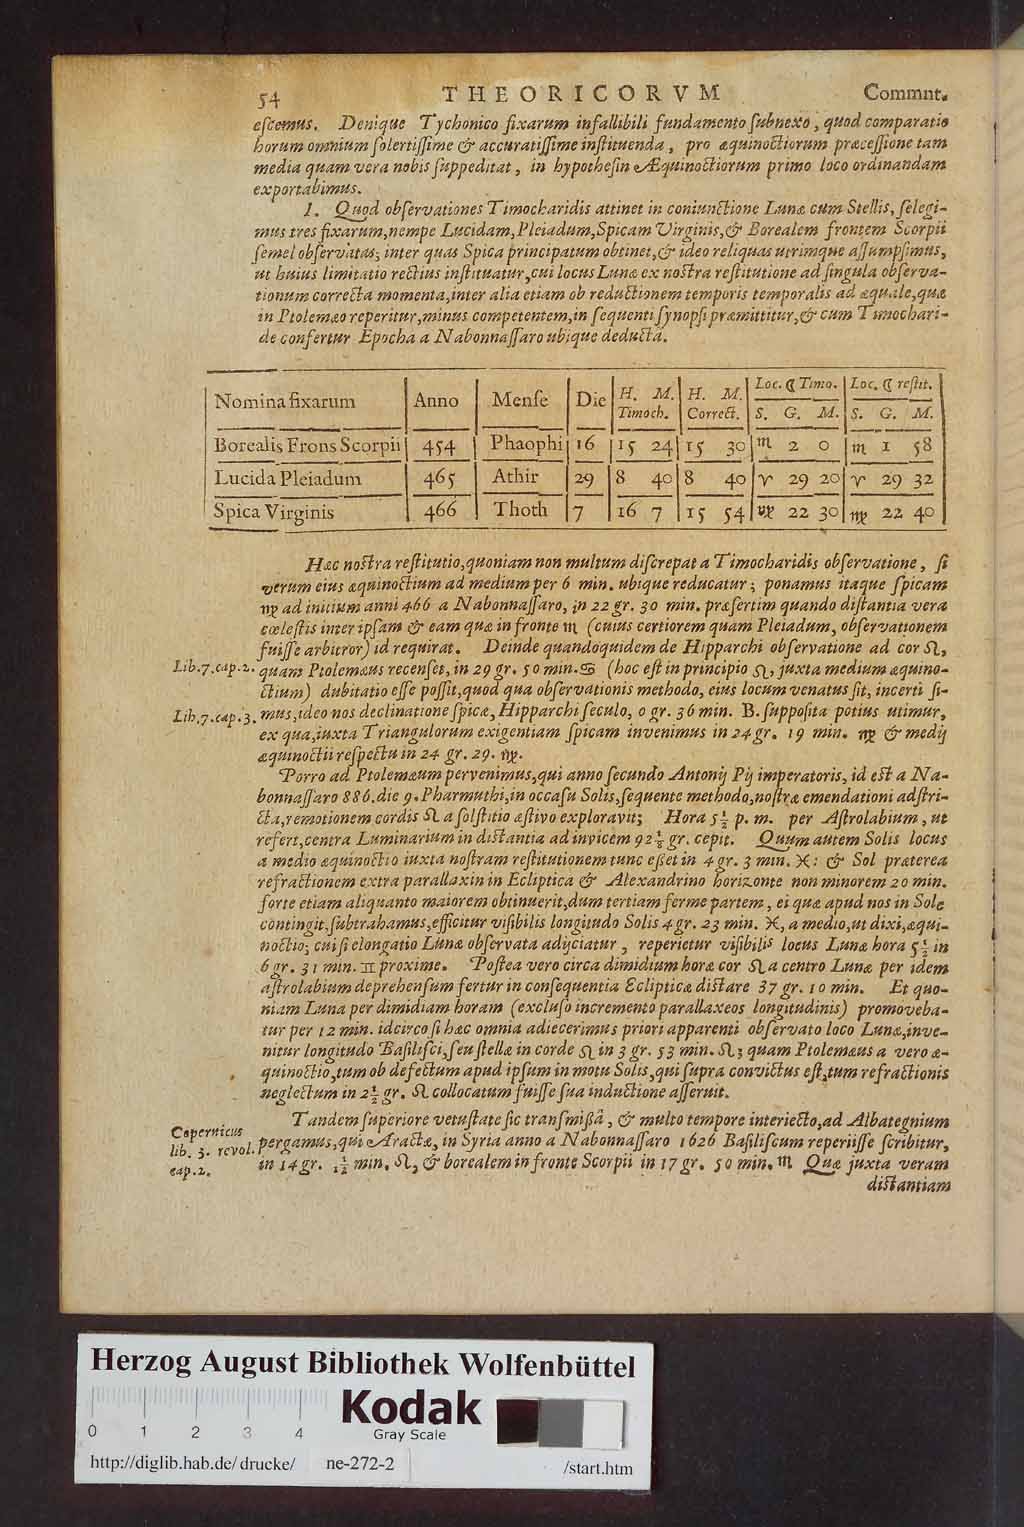 54 THEORICORVM Commnt.
escemus. Denique Tychonico fixarum infallibili fundamento subnexo, quod comparatio
horum omnium solertissime & accuratissime instituenda, pro æquinoctiorum præcessione tam
media quam vera nobis suppeditat, in hypothesin Æquinoctiorum primo loco ordinandam
exportabimus.
1. Quod observationes Timocharidis attinet in coniunctione Lunæ cum Stellis, selegi-
mus tres fixarum, nempe Lucidam, Pleiadum, Spicam Virginis, & Borealem frontem Scorpii
semel observatas; inter quas Spica principatum obtinet, & ideo reliquas utrimque assumpsimus,
ut huius limitatio rectius instituatur, cui locus Lunæ ex nostra restitutione ad singula observa-
tionum correcta momenta, inter alia etiam ob reductionem temporis temporalis ad æquale, quæ
in Ptolemæo reperitur, minus competentem, in sequenti synopsi præmittitur, & cum Timochari-
de confertur Epocha a Nabonnassaro ubique deducta.
Nomina fixarum Anno Mense Die H. M. Timoch. H. M. Correct. Loc. ☾ Timo. S. G. M. Loc. ☾ restit. S. G. M.
Borealis Frons Scorpii 454 Phaophi 16 15 24 15 30 ♏ 2 0 ♏ 1 58
Lucida Pleiadum 465 Athir 29 8 40 8 40 ♈ 29 20 ♈ 29 32
Spica Virginis 466 Thoth 7 16 7 15 54 ♍ 22 30 ♍ 22 40
Hæc nostra restitutio, quoniam non multum discrepat a Timocharidis observatione, si
verum eius æquinoctium ad medium per 6 min. ubique reducatur; ponamus itaque spicam
♍ ad initium anni 466 a Nabonnassaro, in 22 gr. 30 min. præsertim quando distantia vera
cœlestis inter ipsam & eam quæ in fronte ♏ (cuius certiorem quam Pleiadum, observationem
fuisse arbitror) id requirat. Deinde quandoquidem de Hipparchi observatione ad cor ♌,
Lib. 7. cap. 2. quam Ptolemæus recenset, in 29 gr. 50 min. ♋ (hoc est in principio ♌, juxta medium æquino-
ctium) dubitatio esse possit, quod qua observationis methodo, eius locum venatus sit, incerti si-
Lib. 7. cap. 3. mus, ideo nos declinatione spicæ, Hipparchi seculo, 0 gr. 36 min. B. supposita potius utimur,
ex qua, iuxta Triangulorum exigentiam spicam invenimus in 24 gr. 19 min. ♍ & medij
æquinoctii respectu in 24 gr. 29. ♍.
Porro ad Ptolemæum pervenimus, qui anno secundo Antonij Pij imperatoris, id est a Na-
bonnassaro 886. die 9. Pharmuthi, in occasu Solis, sequente methodo, nostræ emendationi adstri-
cta, remotionem cordis ♌ a solstitio æstivo exploravit; Hora 5½ p. m. per Astrolabium, ut
refert, centra Luminarium in distantia ad invicem 92⅛ gr. cepit. Quum autem Solis locus
a medio æquinoctio iuxta nostram restitutionem tunc esset in 4 gr. 3 min. ♓: & Sol præterea
refractionem extra parallaxin in Ecliptica & Alexandrino horizonte non minorem 20 min.
forte etiam aliquanto maiorem obtinuerit, dum tertiam ferme partem, ei quæ apud nos in Sole
contingit, subtrahamus, efficitur visibilis longitudo Solis 4 gr. 23 min. ♓, a medio, ut dixi, æqui-
noctio; cui si elongatio Lunæ observata adijciatur, reperietur visibilis locus Lunæ hora 5½ in
6 gr. 31 min. ♊ proxime. Postea vero circa dimidium horæ cor ♌ a centro Lunæ per idem
astrolabium deprehensum fertur in consequentia Eclipticæ distare 37 gr. 10 min. Et quo-
niam Luna per dimidiam horam (excluso incremento parallaxeos longitudinis) promoveba-
tur per 12 min. idcirco si hæc omnia adiecerimus priori apparenti observato loco Lunæ, inve-
nitur longitudo Basilisci, seu stellæ in corde ♌ in 3 gr. 53 min. ♌; quam Ptolemæus a vero æ-
quinoctio, tum ob defectum apud ipsum in motu Solis, qui supra convictus est, tum refractionis
neglectum in 2½ gr. ♌ collocatum fuisse sua inductione asseruit.
Tandem superiore vetustate sic transmissâ, & multo tempore interiecto, ad Albategnium
Copernicus lib. 3. revol. cap. 2. pergamus, qui Aractæ, in Syria anno a Nabonnassaro 1626 Basiliscum reperiisse scribitur,
in 14 gr. 1½ min. ♌, & borealem in fronte Scorpii in 17 gr. 50 min. ♏ Quæ juxta veram
distantiam
Herzog August Bibliothek Wolfenbüttel
Kodak
Gray Scale
0 1 2 3 4
http://diglib.hab.de/drucke/ ne-272-2 /start.htm